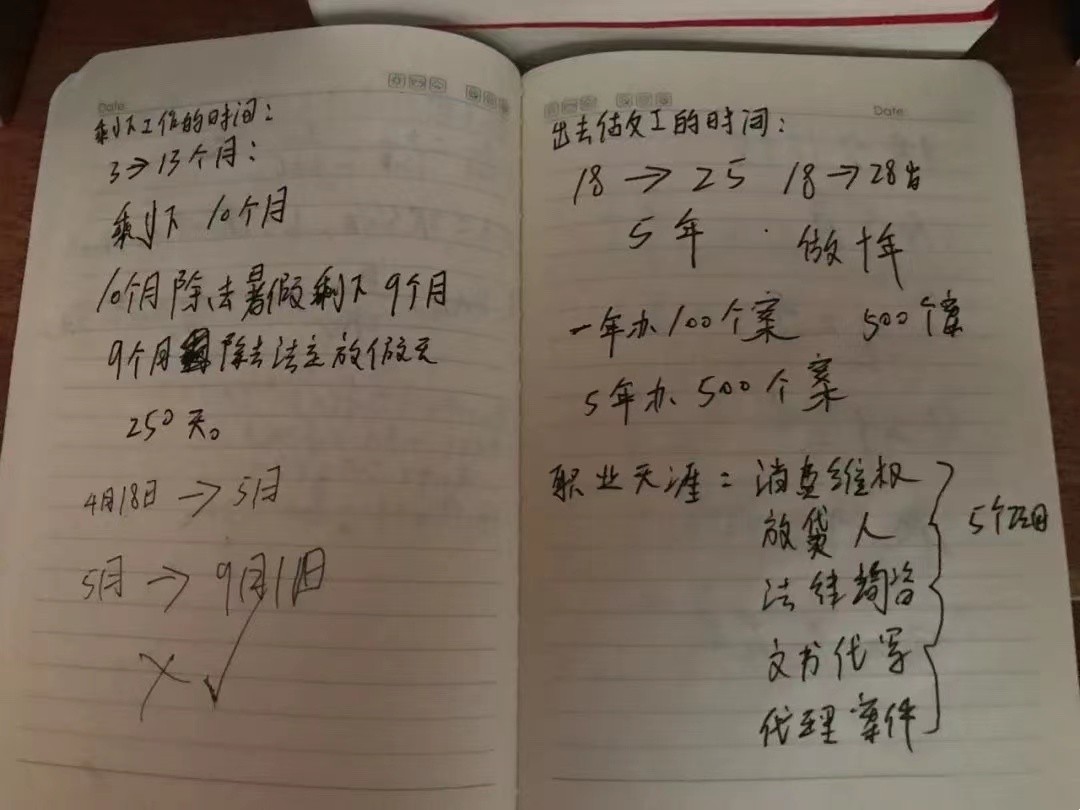 Date
剩下工作的时间：
3→13个月：
剩下 10个月
10个月除去暑假剩下 9个月
9个月除去法定放假天
250天。
4月18日 → 5月
5月 → 9月1日
× ✓
Date
出去做工的时间：
18 → 25 18→28岁
5年 做十年
一年办100个案 500个案
5年办500个案
职业天涯：消费维权
放贷人
5个项目
法律
文书代写
代理案件